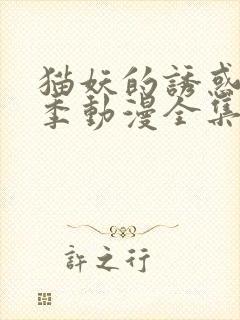 猫妖的誘惑
季動漫全集
許之行